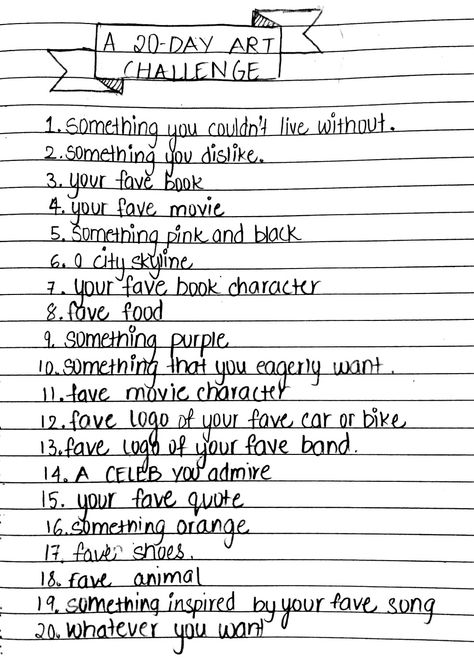 A 20-DAY ART
CHALLENGE
1. something you couldn't live without.
2. something you dislike.
3. your fave book
4. your fave movie
5. something pink and black
6. a city skyline
7. your fave book character
8. fave food
9. something purple
10. something that you eagerly want.
11. fave movie character
12. fave logo of your fave car or bike
13. fave logo of your fave band.
14. A CELEB you admire
15. your fave quote
16. something orange
17. fave shoes.
18. fave animal
19. something inspired by your fave song
20. whatever you want